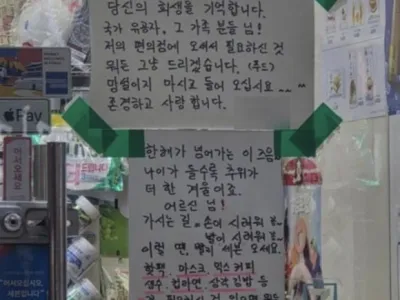 당신의 희생을 기억합니다.
국가 유공자, 그 가족 분들 님!
저의 편의점에 오셔서 필요하신 것
뭐든 그냥 드리겠습니다. (푸드)
망설이지 마시고 들어 오십시요
존경하고 사랑 합니다.
한해가 넘어가는 이 즈음
나이가 들수록 추위가
더 한 겨울이죠.
어르신 님!
가시는 길, 손이 시려워 꽁~
발이 시려워 꽁~
이럴 땐, 빨리 세븐 오세요.
핫팩, 마스크, 믹스 커피
생수, 컵라면, 삼각 김밥 등
Pay
어서오세요
어서오십시오
세븐입니다